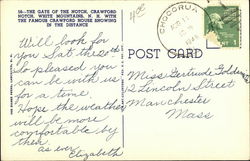 56—THE GATE OF THE NOTCH, CRAWFORD
NOTCH, WHITE MOUNTAINS, N. H. WITH
THE FAMOUS CRAWFORD HOUSE SHOWING
IN THE DISTANCE
CHOCORUA
POST CARD
Will look for
you Sat the 20th
So pleased you
can be with us
for a time
Hope the weather
will be more
comfortable by
then
as ever
Elizabeth
Miss Gertrude
12 Lincoln Street
Manchester
Mass